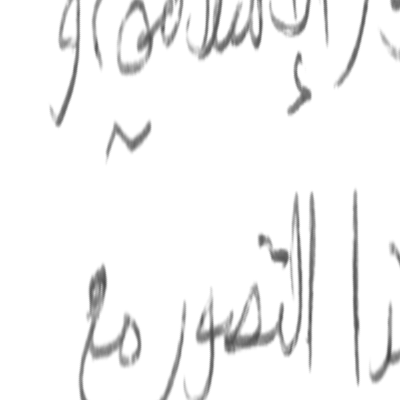 الإسلامي و
ذا التصور مع